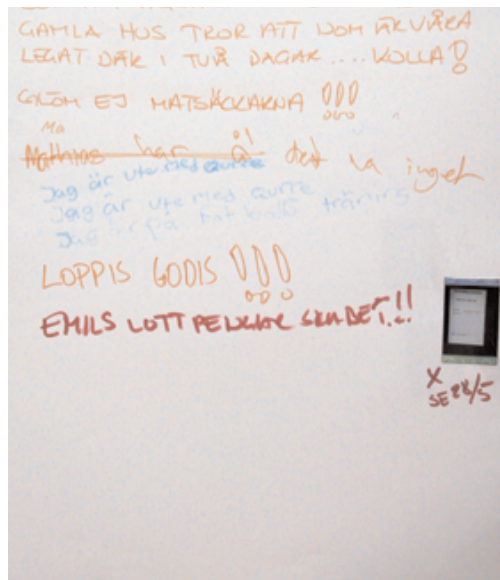 GAMLA HUS TROR ATT DOM ÄR VÅRA
LEGAT DÄR I TVÅ DAGAR .... KOLLA!
GLÖM EJ MATSÄCKARNA !!!
Ma
Mathias har det va inget
Jag är ute med Quttte
Jag är ute med Qutte
Jag är på fotboll träning
LOPPIS GODIS !!!
EMILS LOTTPENGAR SKA BET.!!
X
SE 28/5